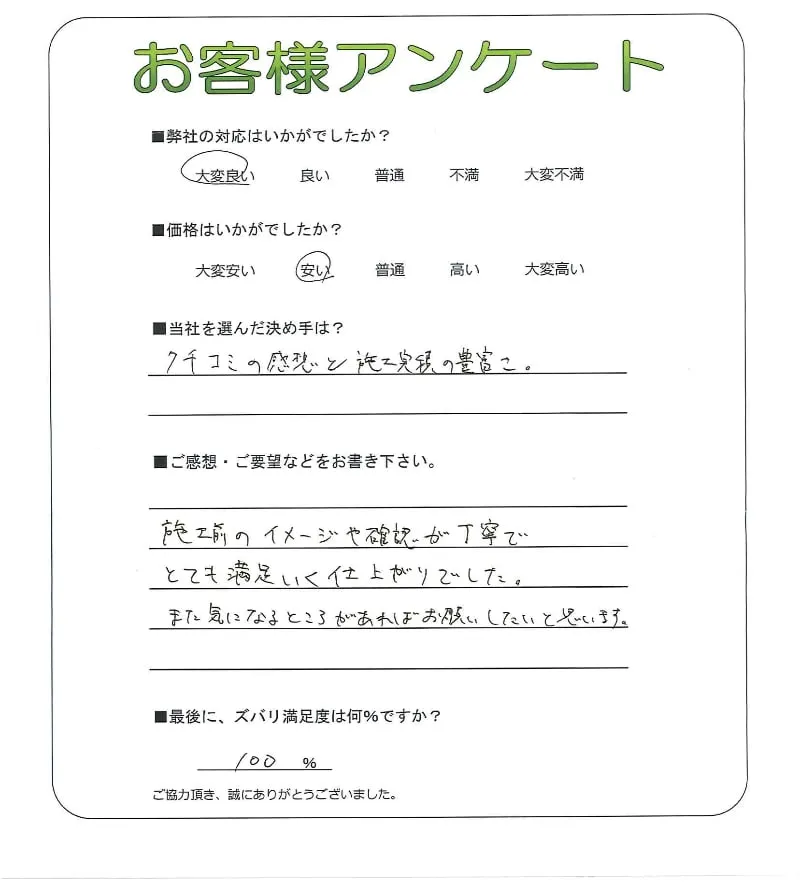 お客様アンケート
■弊社の対応はいかがでしたか？
大変良い 良い 普通 不満 大変不満
■価格はいかがでしたか？
大変安い 安い 普通 高い 大変高い
■当社を選んだ決め手は？
クチコミの感想と施工実積の豊富さ。
■ご感想・ご要望などをお書き下さい。
施工前のイメージや確認が丁寧で
とても満足いく仕上がりでした。
また気になるところがあればお願いしたいと思います。
■最後に、ズバリ満足度は何％ですか？
100 ％
ご協力頂き、誠にありがとうございました。